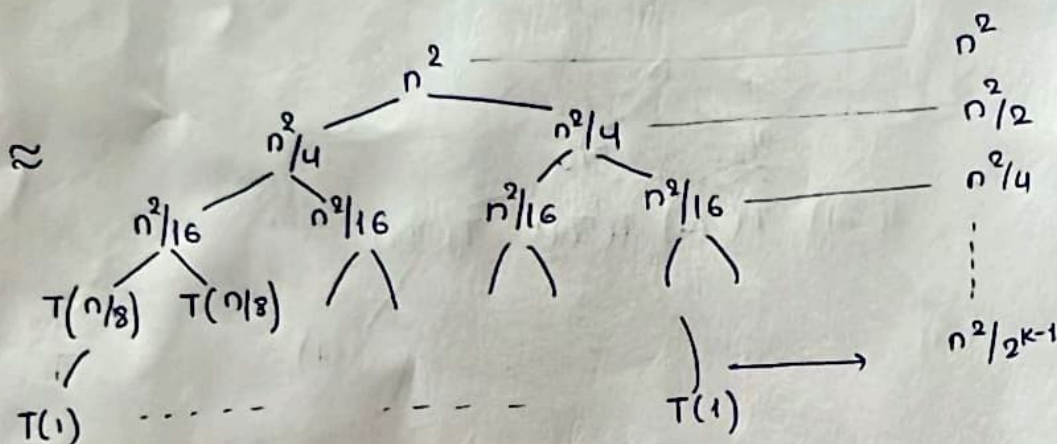 n² n²
≈ n²/4 n²/4 n²/2
n²/16 n²/16 n²/16 n²/16 n²/4
T(n/8) T(n/8)
n²/2ᴷ⁻¹
T(1) T(1)